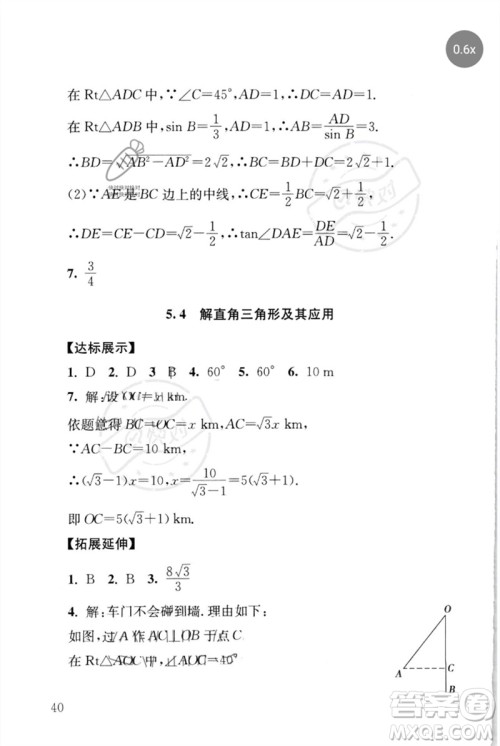 0.6x
在 Rt△ADC 中,∵∠C=45°,AD=1,∴DC=AD=1.
在 Rt△ADB 中,sin B=1/3,AD=1,∴AB=AD/sin B=3.
∴BD=√AB²-AD²=2√2,∴BC=BD+DC=2√2+1.
(2)∵AE 是 BC 边上的中线,∴CE=1/2BC=√2+1/2.
∴DE=CE-CD=√2-1/2,∴tan∠DAE=DE/AD=√2-1/2.
7. 3/4
5.4 解直角三角形及其应用
【达标展示】
1. D 2. D 3. B 4. 60° 5. 60° 6. 10 m
7. 解:设 OC=x km.
依题意得 BC=OC=x km,AC=√3x km.
∵AC-BC=10,
∴(√3-1)x=10,x=10/√3-1=5(√3+1).
即 OC=5(√3+1) km.
【拓展延伸】
1. B 2. B 3. 8√3/3
4. 解:车门不会碰到墙.理由如下:
如图,过 A 作 AC⊥OB 于点 C.
在 Rt△AOC 中,∠AOC=
O
A
C
B
40
答案圈
MXQE.COM